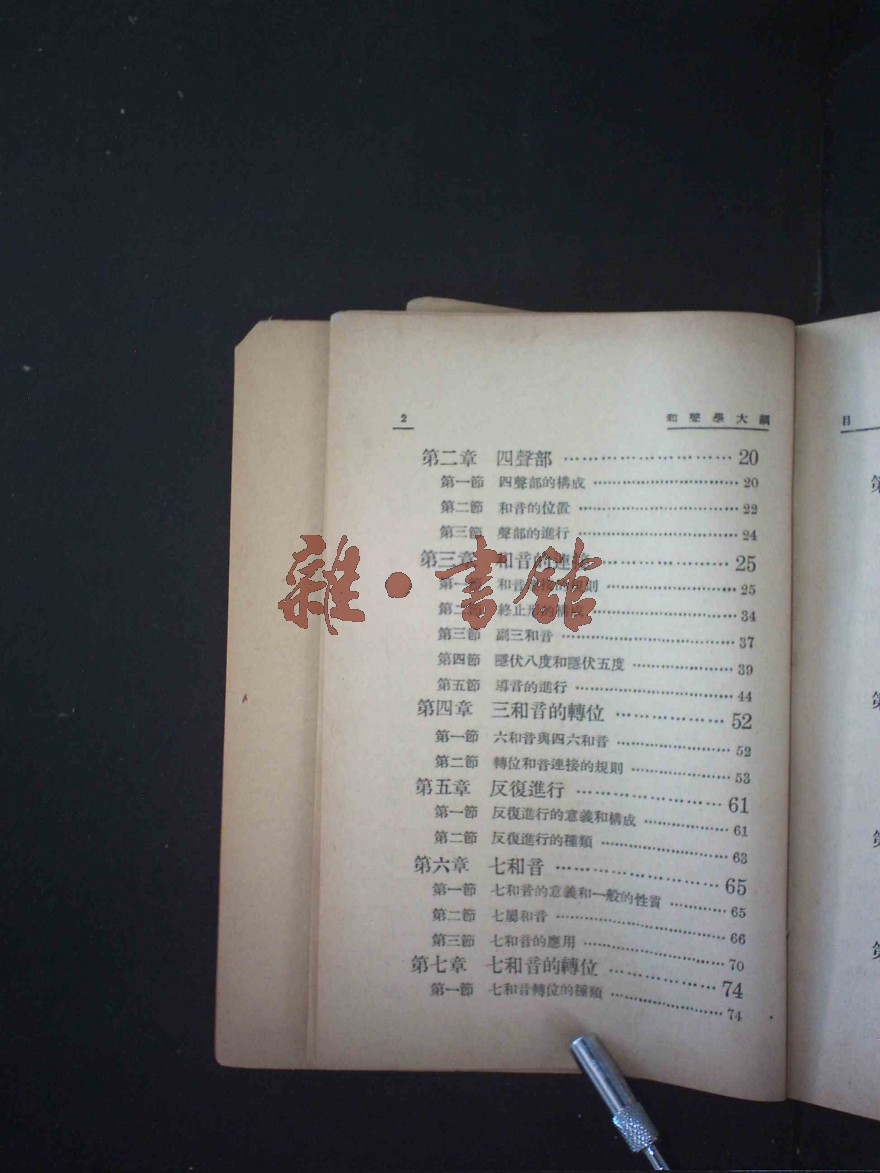 2 和聲學大綱
第二章 四聲部 ………………………… 20
第一節 四聲部的構成 ………………………… 20
第二節 和音的位置 ………………………… 22
第三節 聲部的進行 ………………………… 24
第三章 和音的連接 ………………………… 25
第一節 和音連接的規則 ………………………… 25
第二節 終止形的構成 ………………………… 34
第三節 副三和音 ………………………… 37
第四節 隱伏八度和隱伏五度 ………………… 39
第五節 導音的進行 ………………………… 44
第四章 三和音的轉位 ………………… 52
第一節 六和音與四六和音 ………………… 52
第二節 轉位和音連接的規則 ………………… 53
第五章 反復進行 ………………………… 61
第一節 反復進行的意義和構成 ……………… 61
第二節 反復進行的種類 ………………………… 63
第六章 七和音 ………………………… 65
第一節 七和音的意義和一般的性質 ………… 65
第二節 七屬和音 ………………………… 66
第三節 七和音的應用 ………………………… 70
第七章 七和音的轉位 ………………… 74
第一節 七和音轉位的種類 ………………… 74
雜·書館
目
第
第
第
第